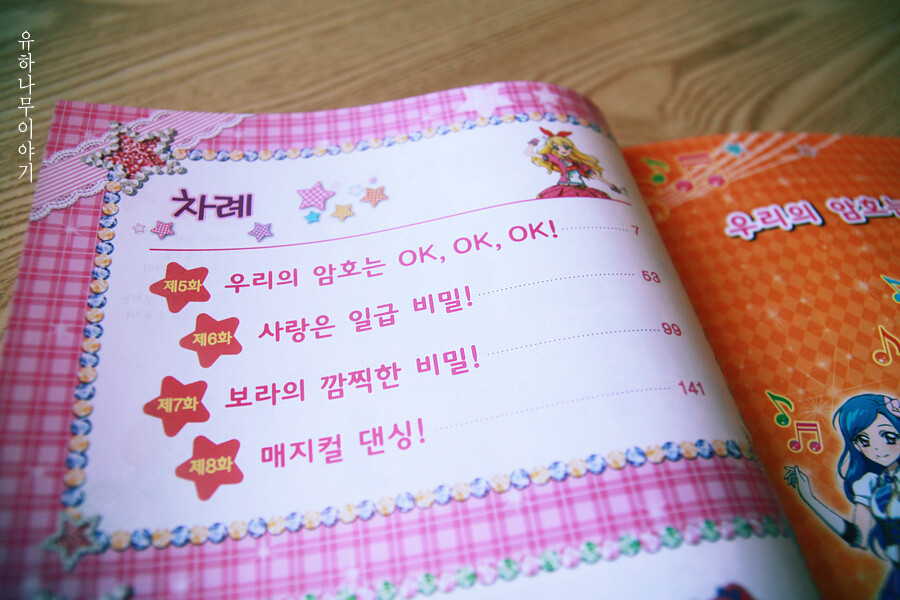 유하나무이야기
차례
제5화 우리의 암호는 OK, OK, OK! 7
제6화 사랑은 일급 비밀! 53
제7화 보라의 깜찍한 비밀! 99
제8화 매지컬 댄싱! 141
우리의 암호는